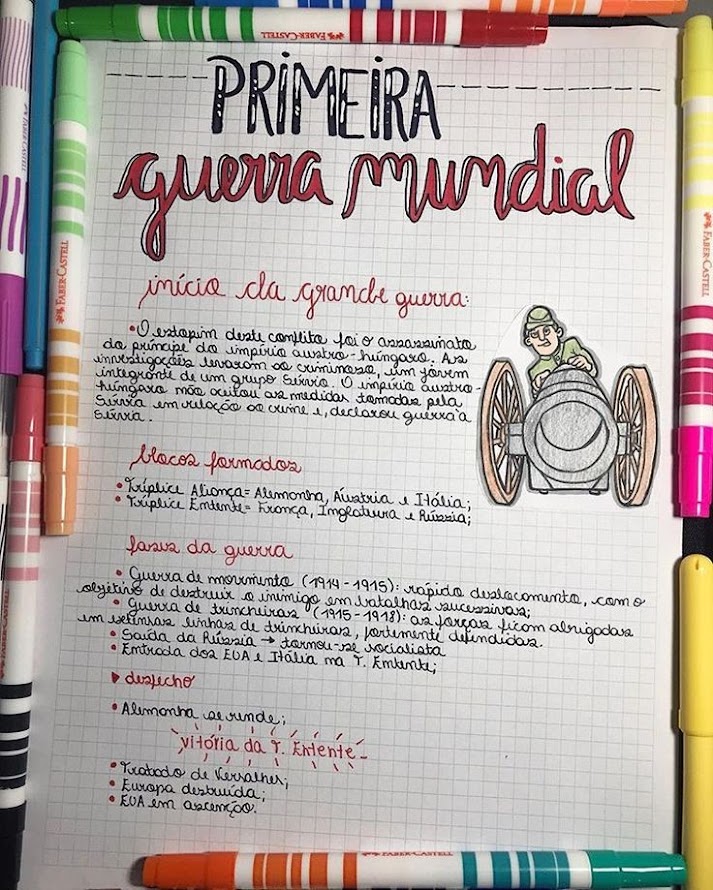 FABER-CASTELL
FABER-CASTELL
PRIMEIRA
guerra mundial
início da grande guerra:
• O estopim deste conflito foi o assassinato
do príncipe do império austro-húngaro. As
investigações levaram ao criminoso, um jovem
integrante de um grupo Sérvio. O império austro-
húngaro não aceitou as medidas tomadas pela
Sérvia em relação ao crime e, declarou guerra à
Sérvia.
blocos formados
• Tríplice Aliança= Alemanha, Áustria e Itália;
• Tríplice Entente= França, Inglaterra e Rússia;
fases da guerra
• Guerra de movimento (1914-1915): rápido deslocamento, com o
objetivo de destruir o inimigo em batalhas sucessivas;
• Guerra de trincheiras (1915-1918): as forças ficam abrigadas
em extensas linhas de trincheiras, fortemente defendidas.
• Saída da Rússia → tornou-se socialista
• Entrada dos EUA e Itália na T. Entente;
▶ desfecho
• Alemanha se rende;
vitória da T. Entente
• Tratado de Versalhes;
• Europa destruída;
• EUA em ascenção.
FABER-CASTELL
FABER-CASTELL
FABER-CASTELL
FABER-CASTELL
FABER-CASTELL